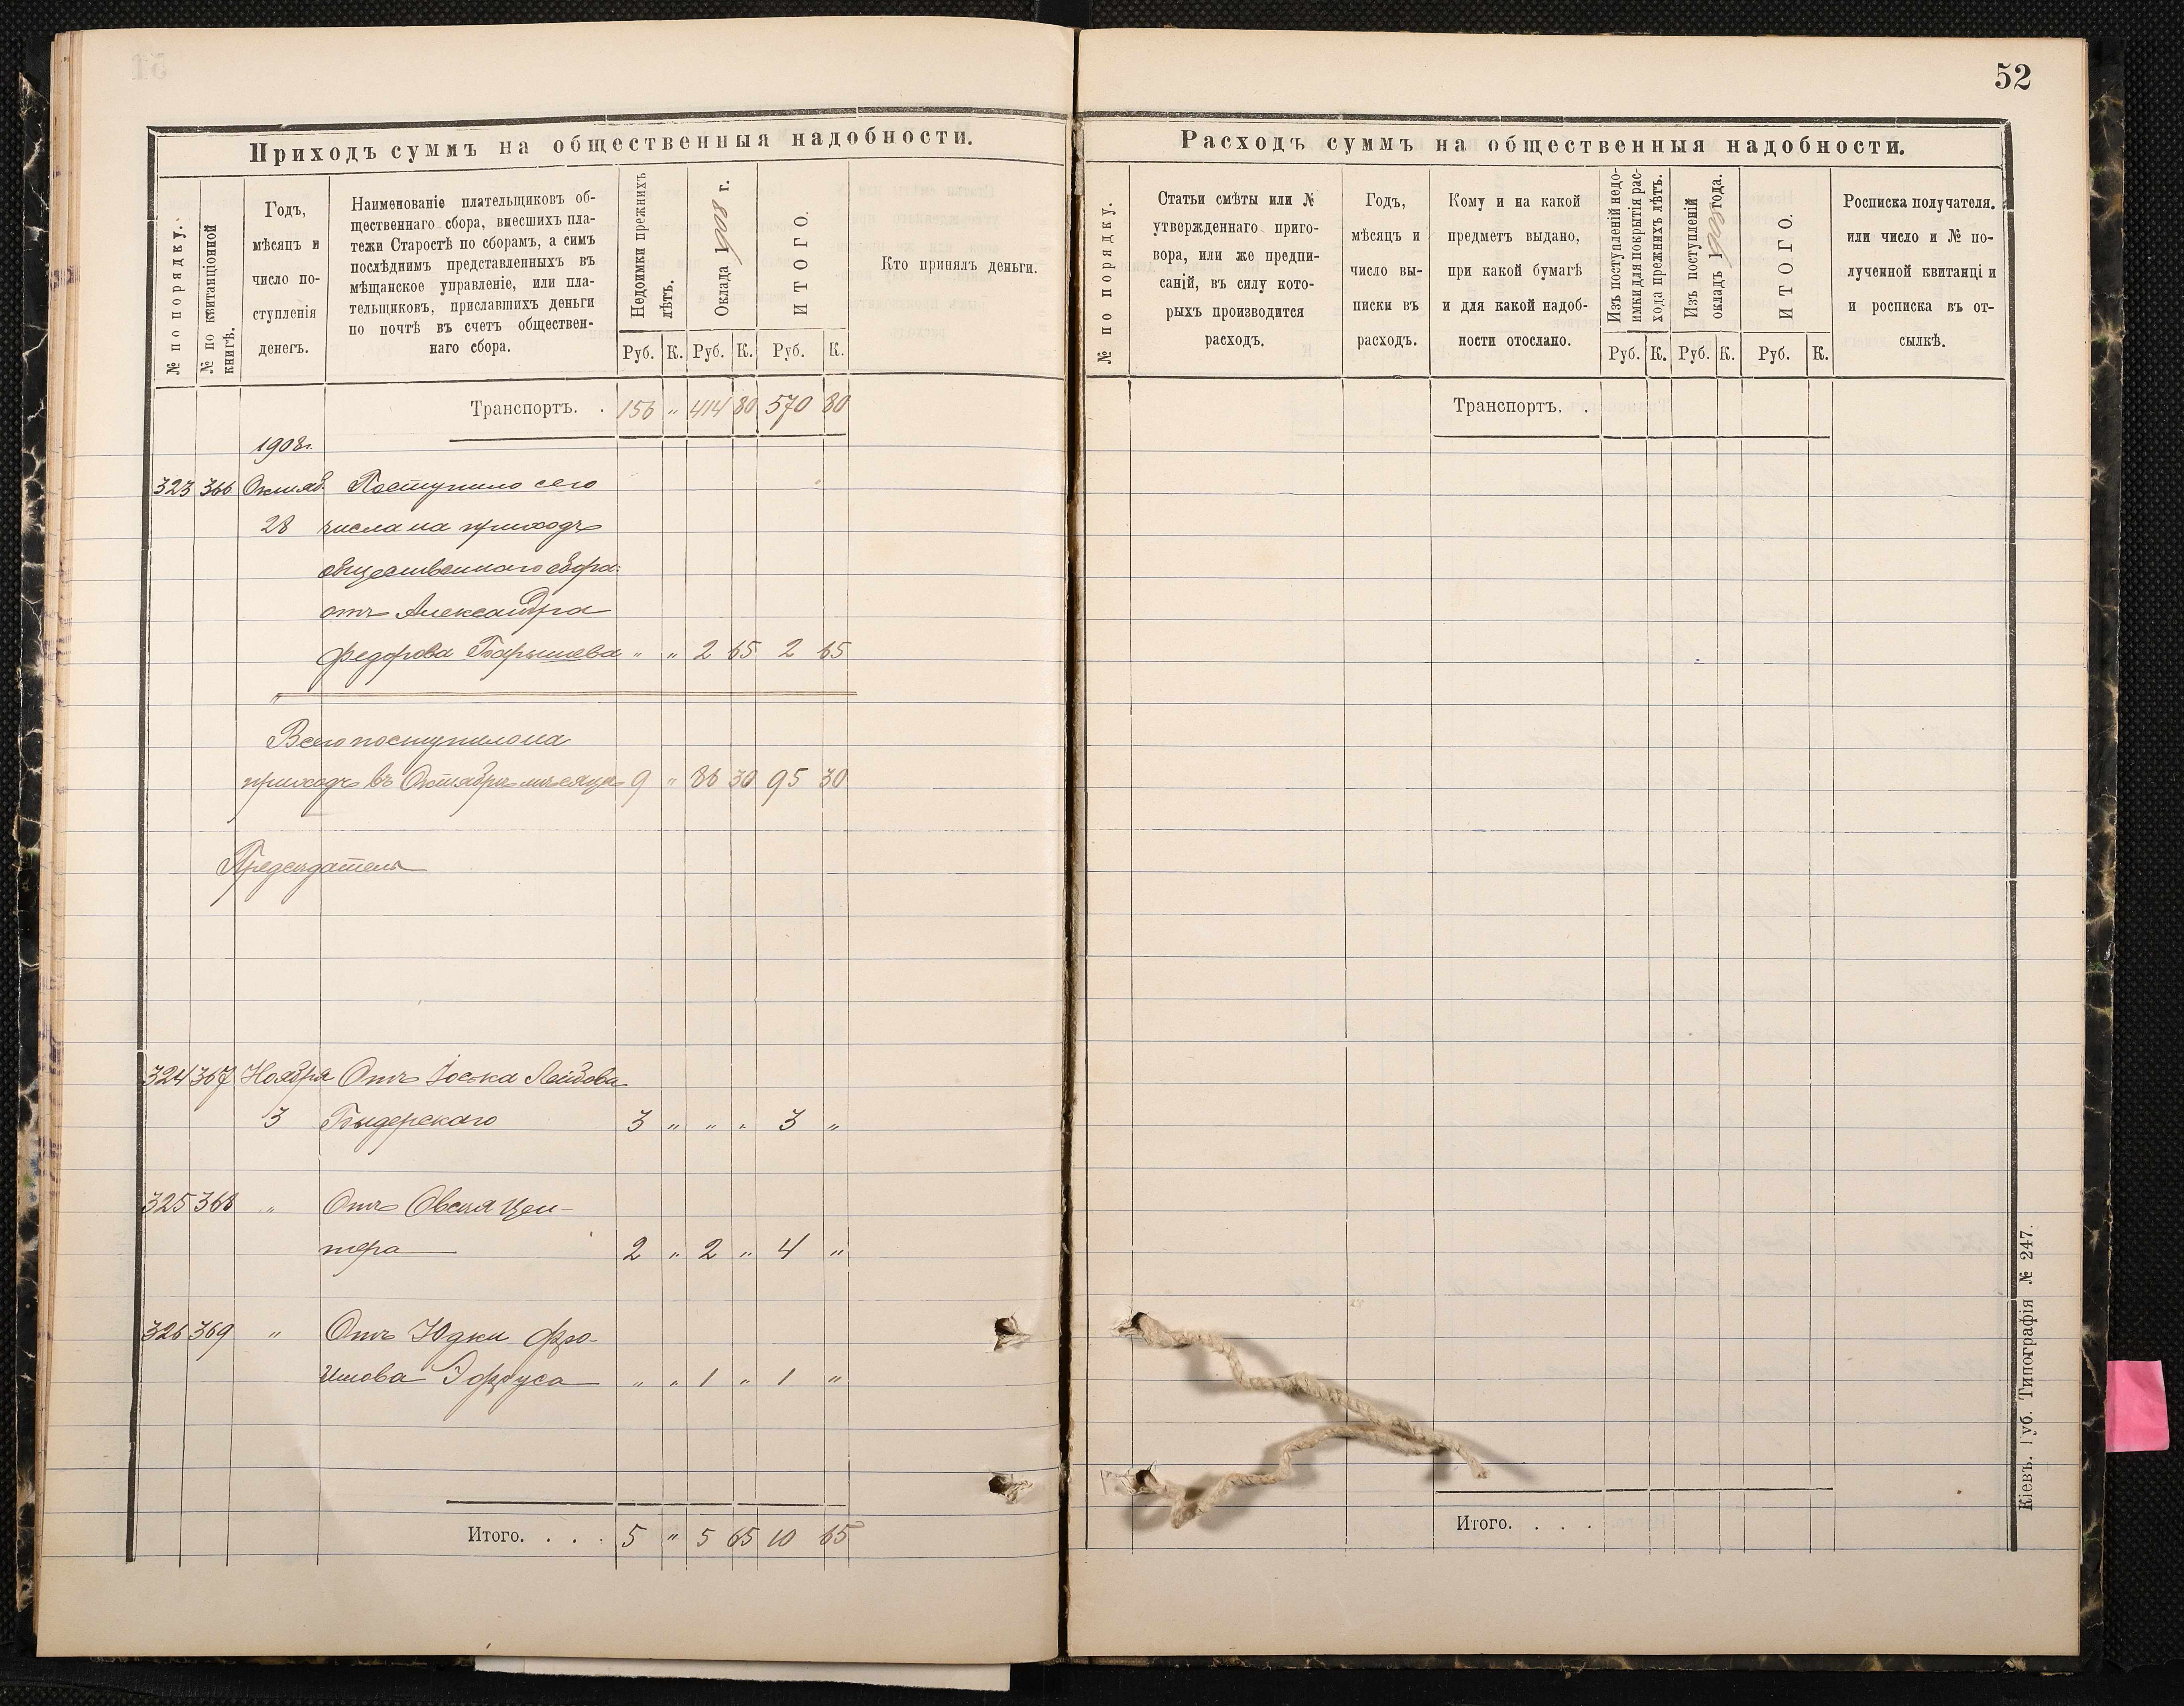 52
Приходъ суммъ на общественныя надобности.
№ по порядку.
№ по квитанціонной книгѣ.
Годъ,
мѣсяцъ и
число по-
ступленія
денегъ.
Наименованіе плательщиковъ об-
щественнаго сбора, внесшихъ пла-
тежи Старостѣ по сборамъ, а симъ
послѣднимъ представленныхъ въ
мѣщанское управленіе, или пла-
тельщиковъ, приславшихъ деньги
по почтѣ въ счетъ обществен-
наго сбора.
Недоимки прежнихъ
лѣтъ.
Оклада 1908 г.
ИТОГО.
Кто принялъ деньги.
Руб. К. Руб. К. Руб. К.
Транспортъ. . 156 " 414 80 570 80
1908г.
323 366 Октяб. Поступило сего
28 числа на приходъ
общественнаго сбора:
отъ Александра
Федорова Барышева " " 2 65 2 65
Всего поступило на
приходъ въ Октябрѣ мѣсяцѣ 9 " 86 30 95 30
Предсѣдатель
324 367 Ноября Отъ Іоська Лейбова
3 " " " 3 "
325 368 " Отъ Овсея Цен-
тера 2 " 2 " 4 "
326 369 " Отъ Юдки Фро-
имова Эфруса " " 1 " 1 "
Итого. . . . 5 " 5 65 10 65
Расходъ суммъ на общественныя надобности.
№ по порядку.
Статьи смѣты или №
утвержденнаго приго-
вора, или же предпи-
саній, въ силу кото-
рыхъ производится
расходъ.
Годъ,
мѣсяцъ и
число вы-
писки въ
расходъ.
Кому и на какой
предметъ выдано,
при какой бумагѣ
и для какой надоб-
ности отослано.
Изъ поступленій недо-
имки для покрытія рас-
хода прежнихъ лѣтъ.
Изъ поступленій
окладъ 1908 года.
ИТОГО.
Росписка получателя.
или число и № по-
лученной квитанці и
и росписка въ от-
сылкѣ.
Руб. К. Руб. К. Руб. К.
Транспортъ. .
Итого. . . .
Кіевъ. Губ. Типографія № 247.